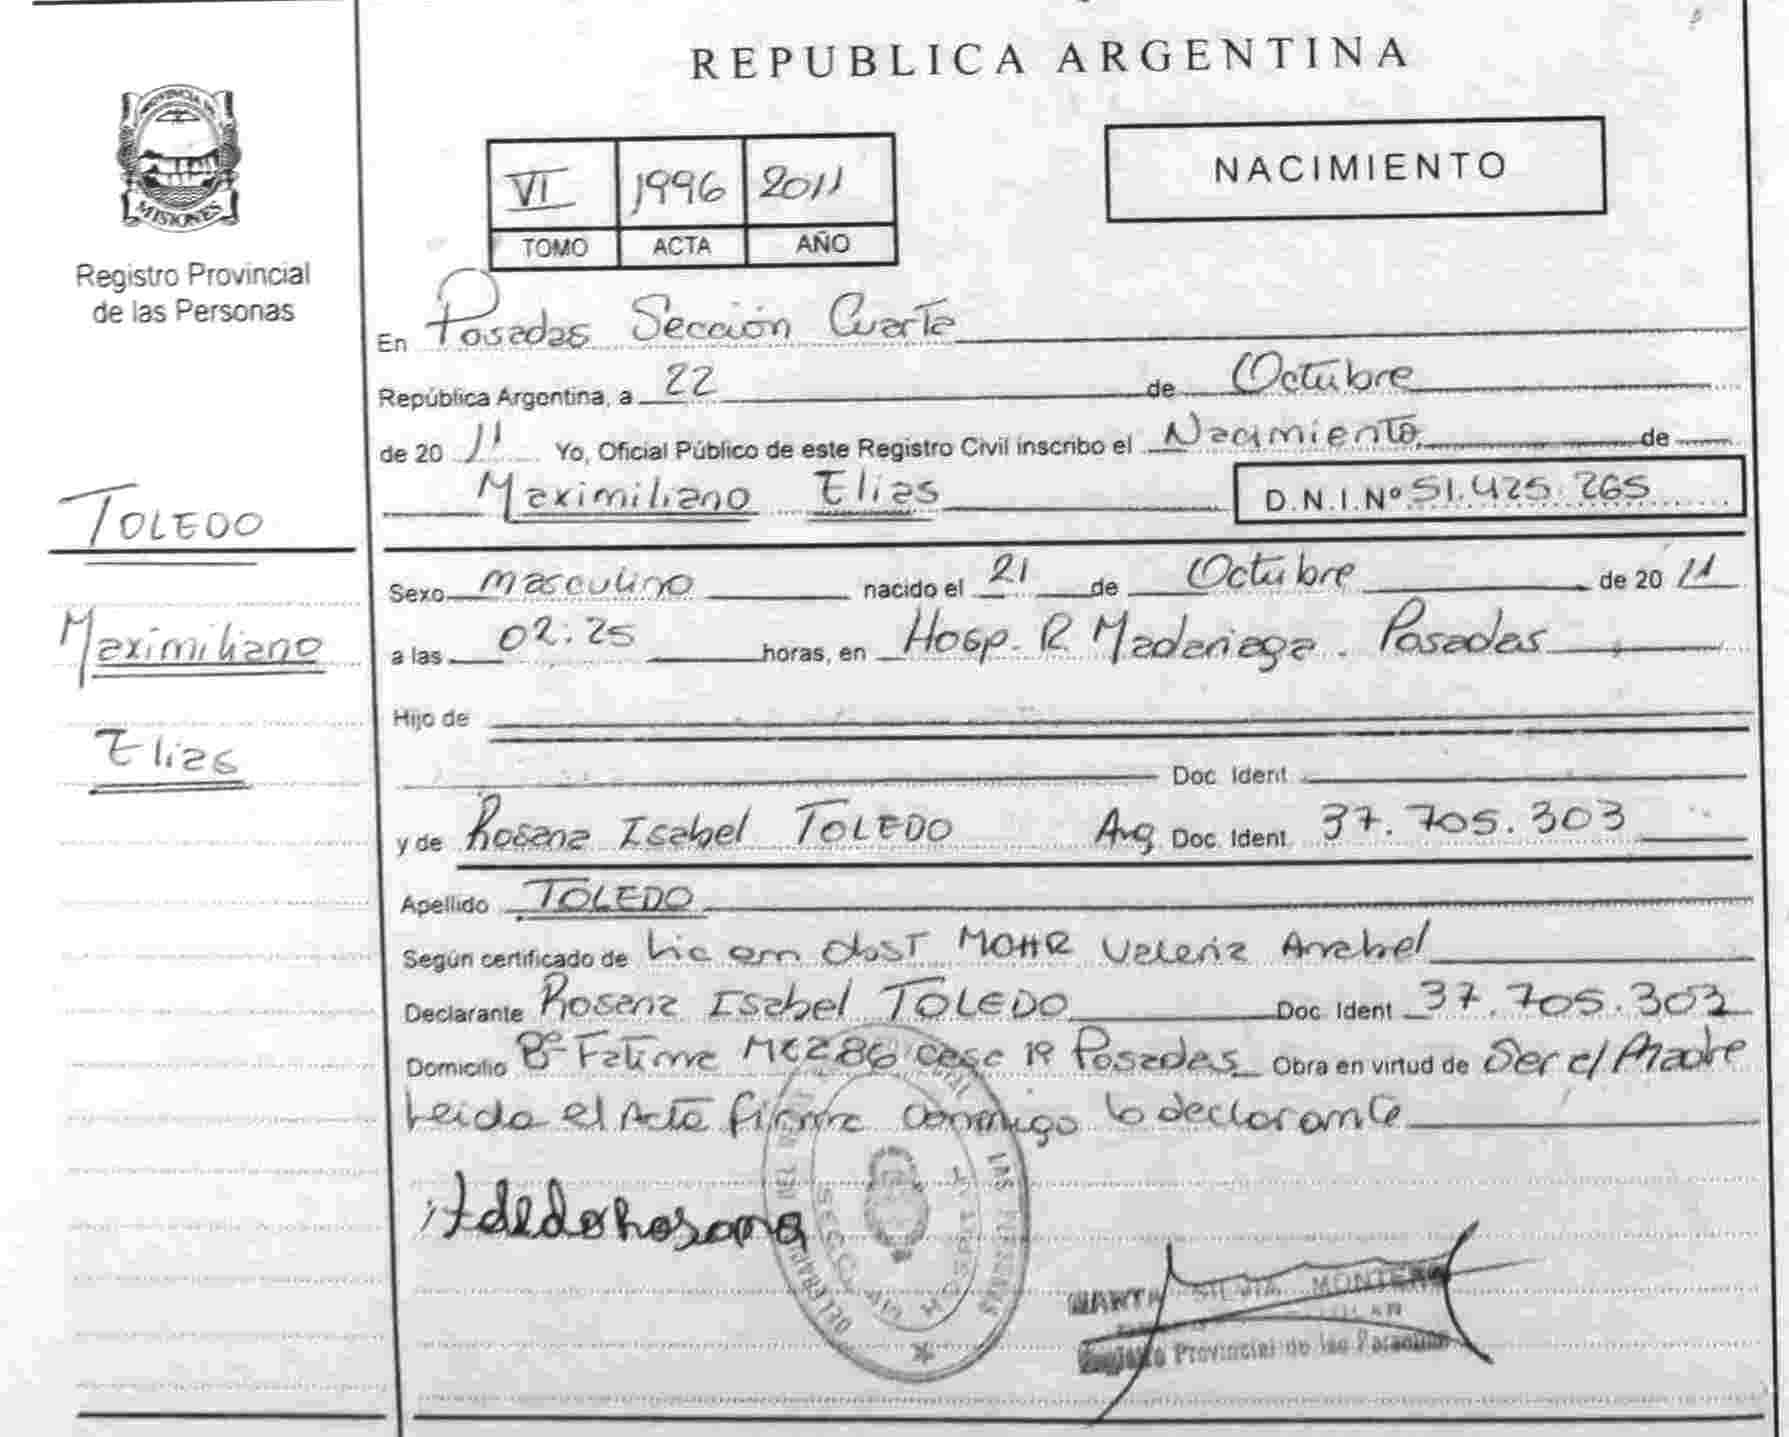 REPUBLICA ARGENTINA
PROVINCIA DE
MISIONES
Registro Provincial
de las Personas
VI 1996 2011
TOMO ACTA AÑO
NACIMIENTO
En Posadas Sección Cuarta
República Argentina, a 22 de Octubre
de 20 11 Yo, Oficial Público de este Registro Civil inscribo el Nacimiento de
Maximiliano Elias D.N.I.Nº 51.425.265
TOLEDO
Maximiliano
Elias
Sexo masculino nacido el 21 de Octubre de 20 11
a las 02:25 horas, en Hosp. R Madariaga. Posadas
Hijo de
Doc. Ident
y de Rosana Isabel TOLEDO Arg Doc. Ident. 37.705.303
Apellido TOLEDO
Según certificado de Lic em obst MOHR Valeria Anabel
Declarante Rosana Isabel TOLEDO Doc. Ident 37.705.303
Domicilio Bº Fatima Mz 286 casa 19 Posadas Obra en virtud de Ser el Madre
Leida el Acta firma conmigo la declarante
toledo Rosana
SILVIA MONTERO
Registro Provincial de las Personas